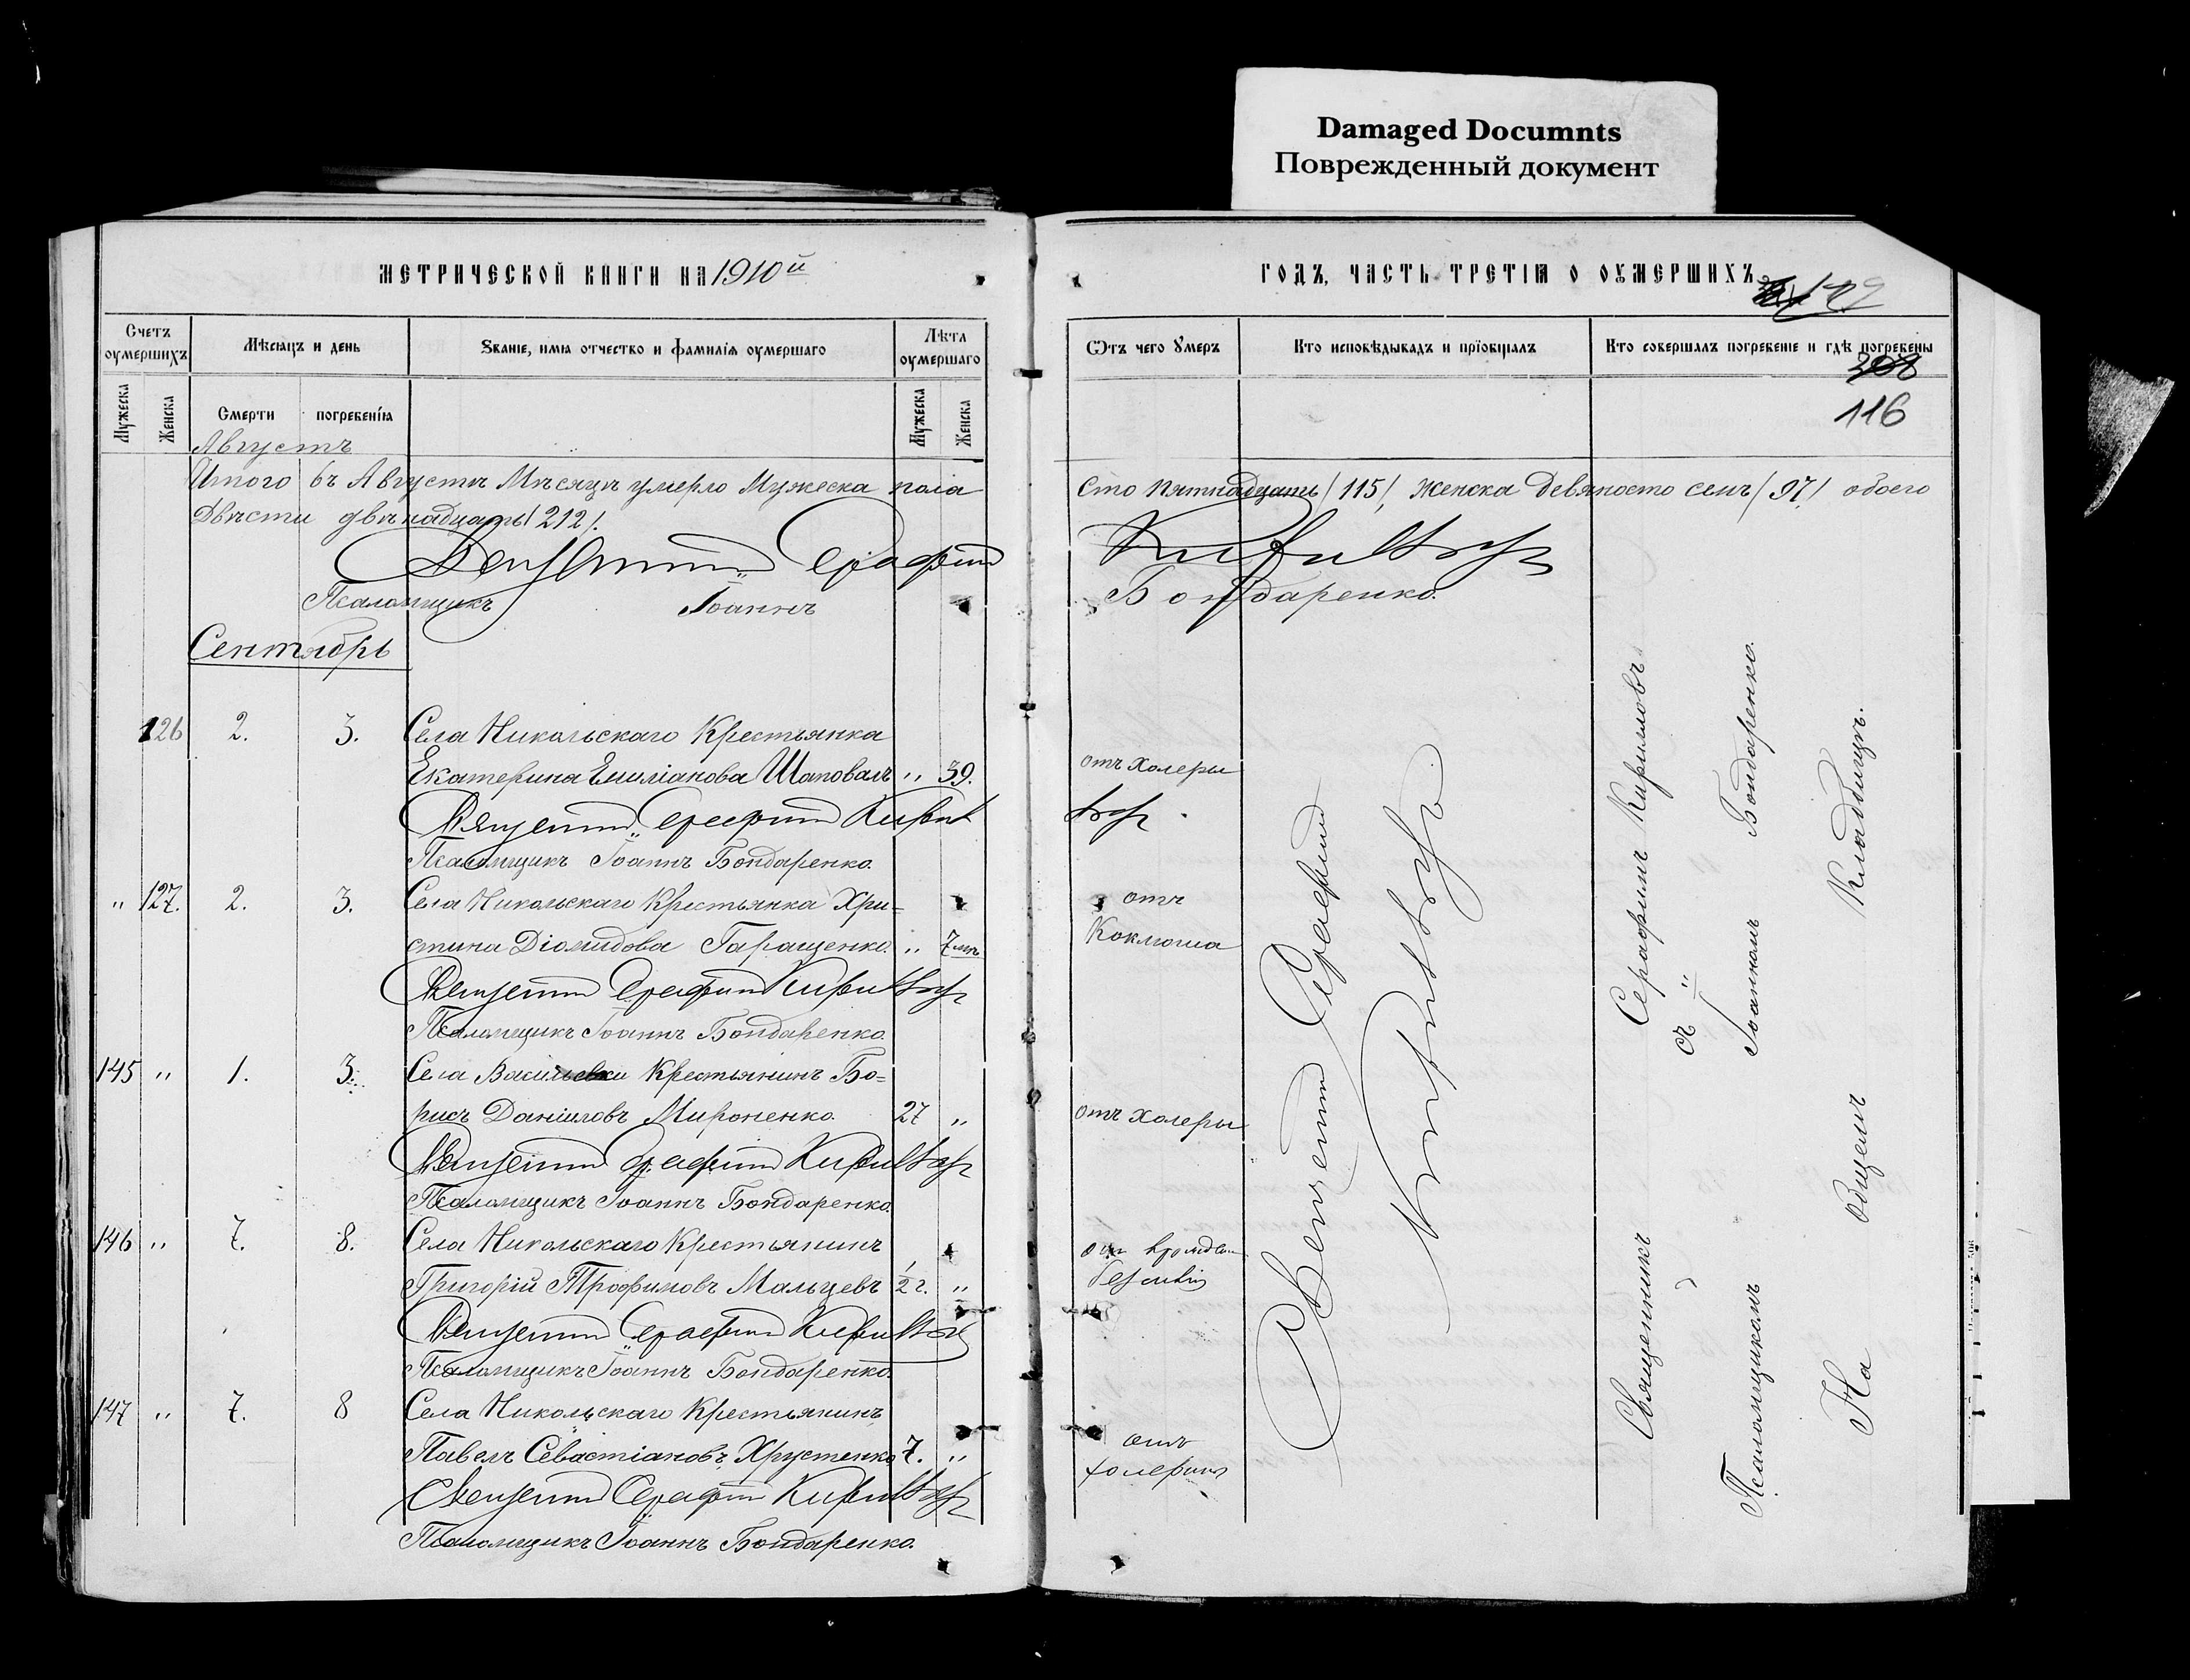 Damaged Documnts
Поврежденный документ
МЕТРИЧЕСКОЙ КНИГИ НА 1910й
ГОДЪ, ЧАСТЬ ТРЕТІѦ О ОУМЕРШИХЪ
Счетъ оумершихъ
Мѣсѧцъ и день
Званіе, имѧ отчество и фамиліѧ оумершаго
Лѣта оумершаго
Ѿтъ чего Умеръ
Кто исповѣдывалъ и прїобщалъ
Кто совершалъ погребеніе и гдѣ погребены
Мужеска
Женска
Смерти
погребенїѧ
Мужеска
Женска
116
Августъ
Итого въ Августѣ Мѣсяцѣ умерло Мужеска пола Сто пятнадцать /115/, Женска девяносто семь /97/ обоего
Двѣсти двѣнадцать /212/.
Священникъ Серафимъ Кириловъ
Псаломщикъ Іоаннъ Бондаренко.
Сентябрь
126 2. 3. Села Никольскаго Крестьянка
Екатерина Емиліанова Шаповалъ " 39. отъ холеры
Священникъ Серафимъ Кириловъ
Псаломщикъ Іоаннъ Бондаренко.
" 127. 2. 3. Села Никольскаго Крестьянка Хри= отъ
стина Діомидова Гаращенко. " 7 мѣ. Коклюша
Священникъ Серафимъ Кириловъ
Псаломщикъ Іоаннъ Бондаренко.
145 " 1. 3. Села Васильевки Крестьянинъ Бо=
рисъ Даніиловъ Мироненко. 27 " отъ холеры
Священникъ Серафимъ Кириловъ
Псаломщикъ Іоаннъ Бондаренко.
146 " 7. 8. Села Никольскаго Крестьянинъ
Григорій Трофимовъ Мальцевъ 1/2 г. "
Священникъ Серафимъ Кириловъ
Псаломщикъ Іоаннъ Бондаренко.
147 " 7. 8 Села Никольскаго Крестьянинъ отъ
Павелъ Севастіановъ Хрустенко 7. " холерины
Священникъ Серафимъ Кириловъ
Псаломщикъ Іоаннъ Бондаренко.
Священникъ Серафимъ
Кириловъ
Священникъ Серафимъ Кириловъ
съ
Псаломщикомъ Іоанномъ Бондаренко.
На Общемъ Кладбищѣ.